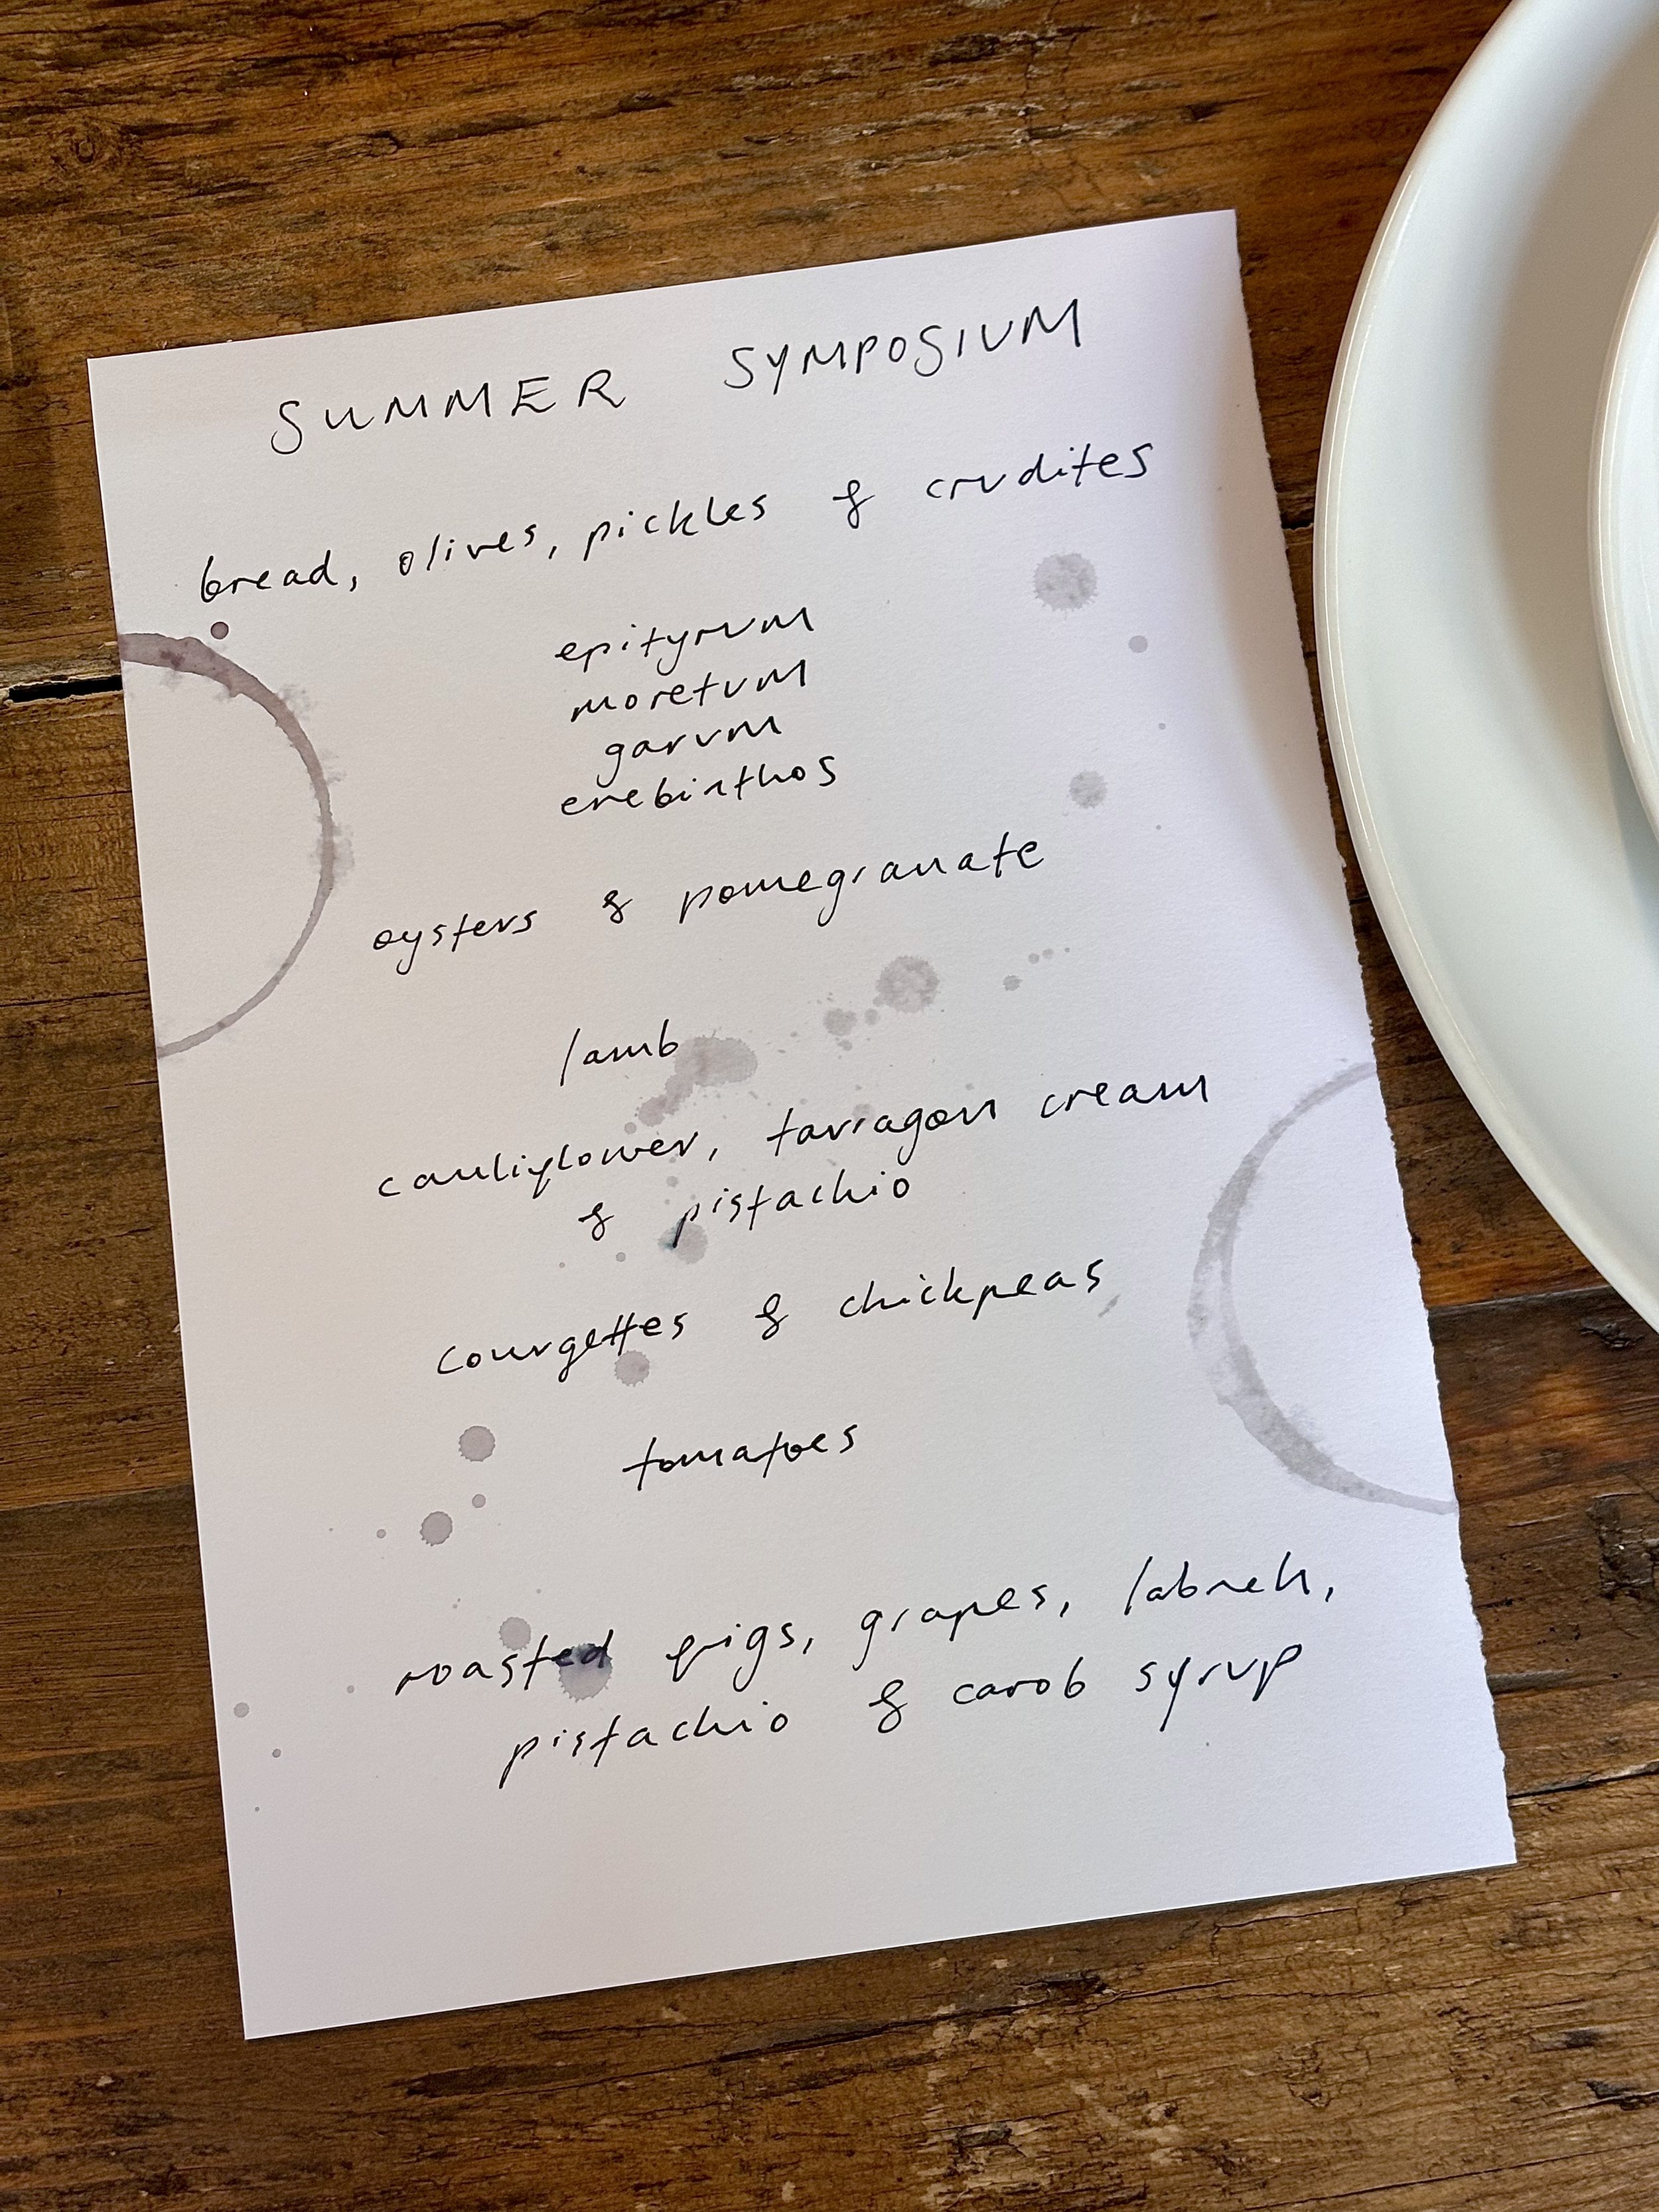 SUMMER SYMPOSIUM
bread, olives, pickles & crudites
epityrum
moretum
garum
erebinthos
oysters & pomegranate
lamb
cauliflower, tarragon cream
& pistachio
courgettes & chickpeas
tomatoes
roasted figs, grapes, labneh,
pistachio & carob syrup